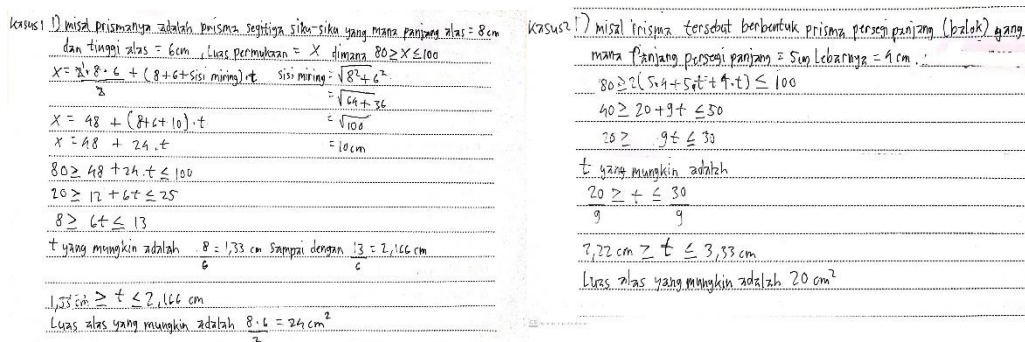 Kasus 1 1) misal prismanya adalah prisma segitiga siku-siku yang mana panjang alas = 8 cm
dan tinggi alas = 6cm, Luas permukaan = X dimana 80 ≥ X ≤ 100
X = 2 · 8 · 6 / 2 + (8+6+sisi miring) · t
sisi miring = √8² + 6²
= √64 + 36
X = 48 + (8+6+10) · t
= √100
X = 48 + 24 . t
= 10 cm
80 ≥ 48 + 24 . t ≤ 100
20 ≥ 12 + 6t ≤ 25
8 ≥ 6t ≤ 13
t yang mungkin adalah 8/6 = 1,33 cm sampai dengan 13/6 = 2,166 cm
1,33 cm ≥ t ≤ 2,166 cm
Luas alas yang mungkin adalah 8 . 6 / 2 = 24 cm²
Kasus 2 1) misal prisma tersebut berbentuk prisma persegi panjang (balok) yang
mana panjang persegi panjang = 5cm Lebarnya = 4 cm.
80 ≥ 2(5.4 + 5.t + 4.t) ≤ 100
40 ≥ 20 + 9t ≤ 50
20 ≥ 9t ≤ 30
t yang mungkin adalah
20/9 ≥ t ≤ 30/9
2,22 cm ≥ t ≤ 3,33 cm
Luas alas yang mungkin adalah 20 cm²